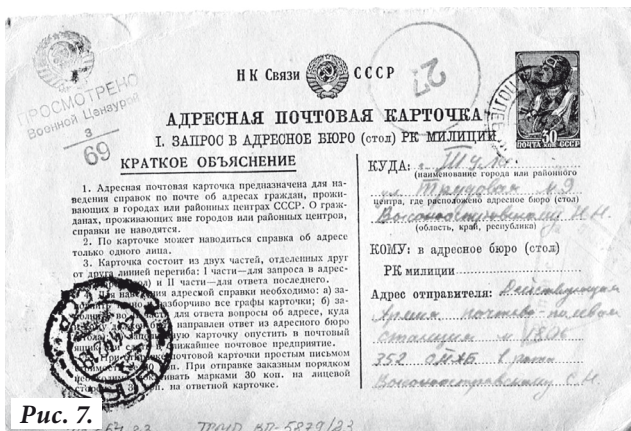 ПРОСМОТРЕНО
Военной Цензурой
3
69
НК Связи СССР
27
30
ПОЧТА СССР
АДРЕСНАЯ ПОЧТОВАЯ КАРТОЧКА
I. ЗАПРОС В АДРЕСНОЕ БЮРО (стол) РК МИЛИЦИИ
КРАТКОЕ ОБЪЯСНЕНИЕ
1. Адресная почтовая карточка предназначена для на-
ведения справок по почте об адресах граждан, прожи-
вающих в городах или районных центрах СССР. О гра-
жданах, проживающих вне городов или районных центров,
справки не наводятся.
2. По карточке может наводиться справка об адресе
только одного лица.
3. Карточка состоит из двух частей, отделенных друг
от друга линией перегиба: I части—для запроса в адрес-
стол) и II части—для ответа последнего.
4. Для наведения адресной справки необходимо: а) за-
разборчиво все графы карточки; б) за-
части для ответа вопросы об адресе, куда
направлен ответ из адресного бюро
карточку опустить в почтовый
ближайшее почтовое предприятие.
При отправке почтовой карточки простым письмом
коп. При отправке заказным порядком
марками 30 коп. на лицевой
коп. на ответной карточке.
КУДА: г. Тула
(наименование города или районного
ул Трудовая № 9
центра, где расположено адресное бюро (стол)
(область, край, республика)
КОМУ: в адресное бюро (стол)
РК милиции
Адрес отправителя: Действующая
Армия почтово-полевая
станция № 1806
352 ОМХБ 1 рота
Рис. 7.
ВП-5879/23